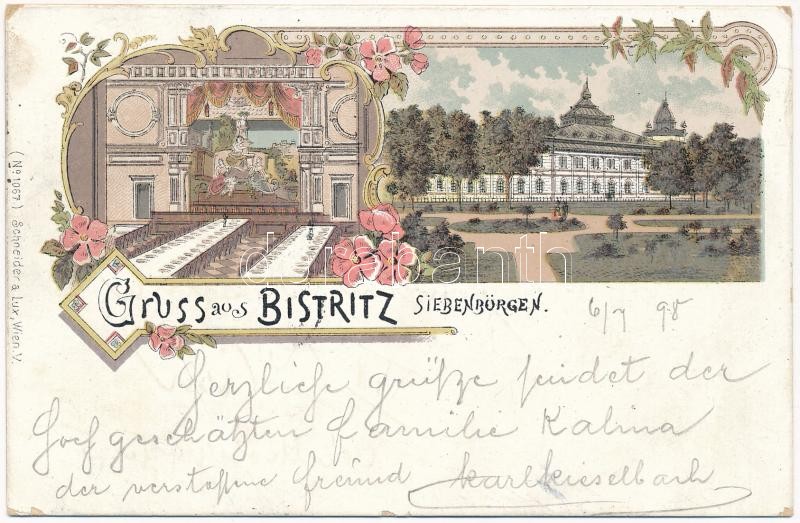 (No 1067.) Schneider & Lux, Wien. V.
Gruss aus BISTRITZ SIEBENBÜRGEN.
6/7 98
Herzliche grüße sendet der
Hoch geschätzten familie Kalina
der verstoffene freund Karl Kieselbach
darabanth